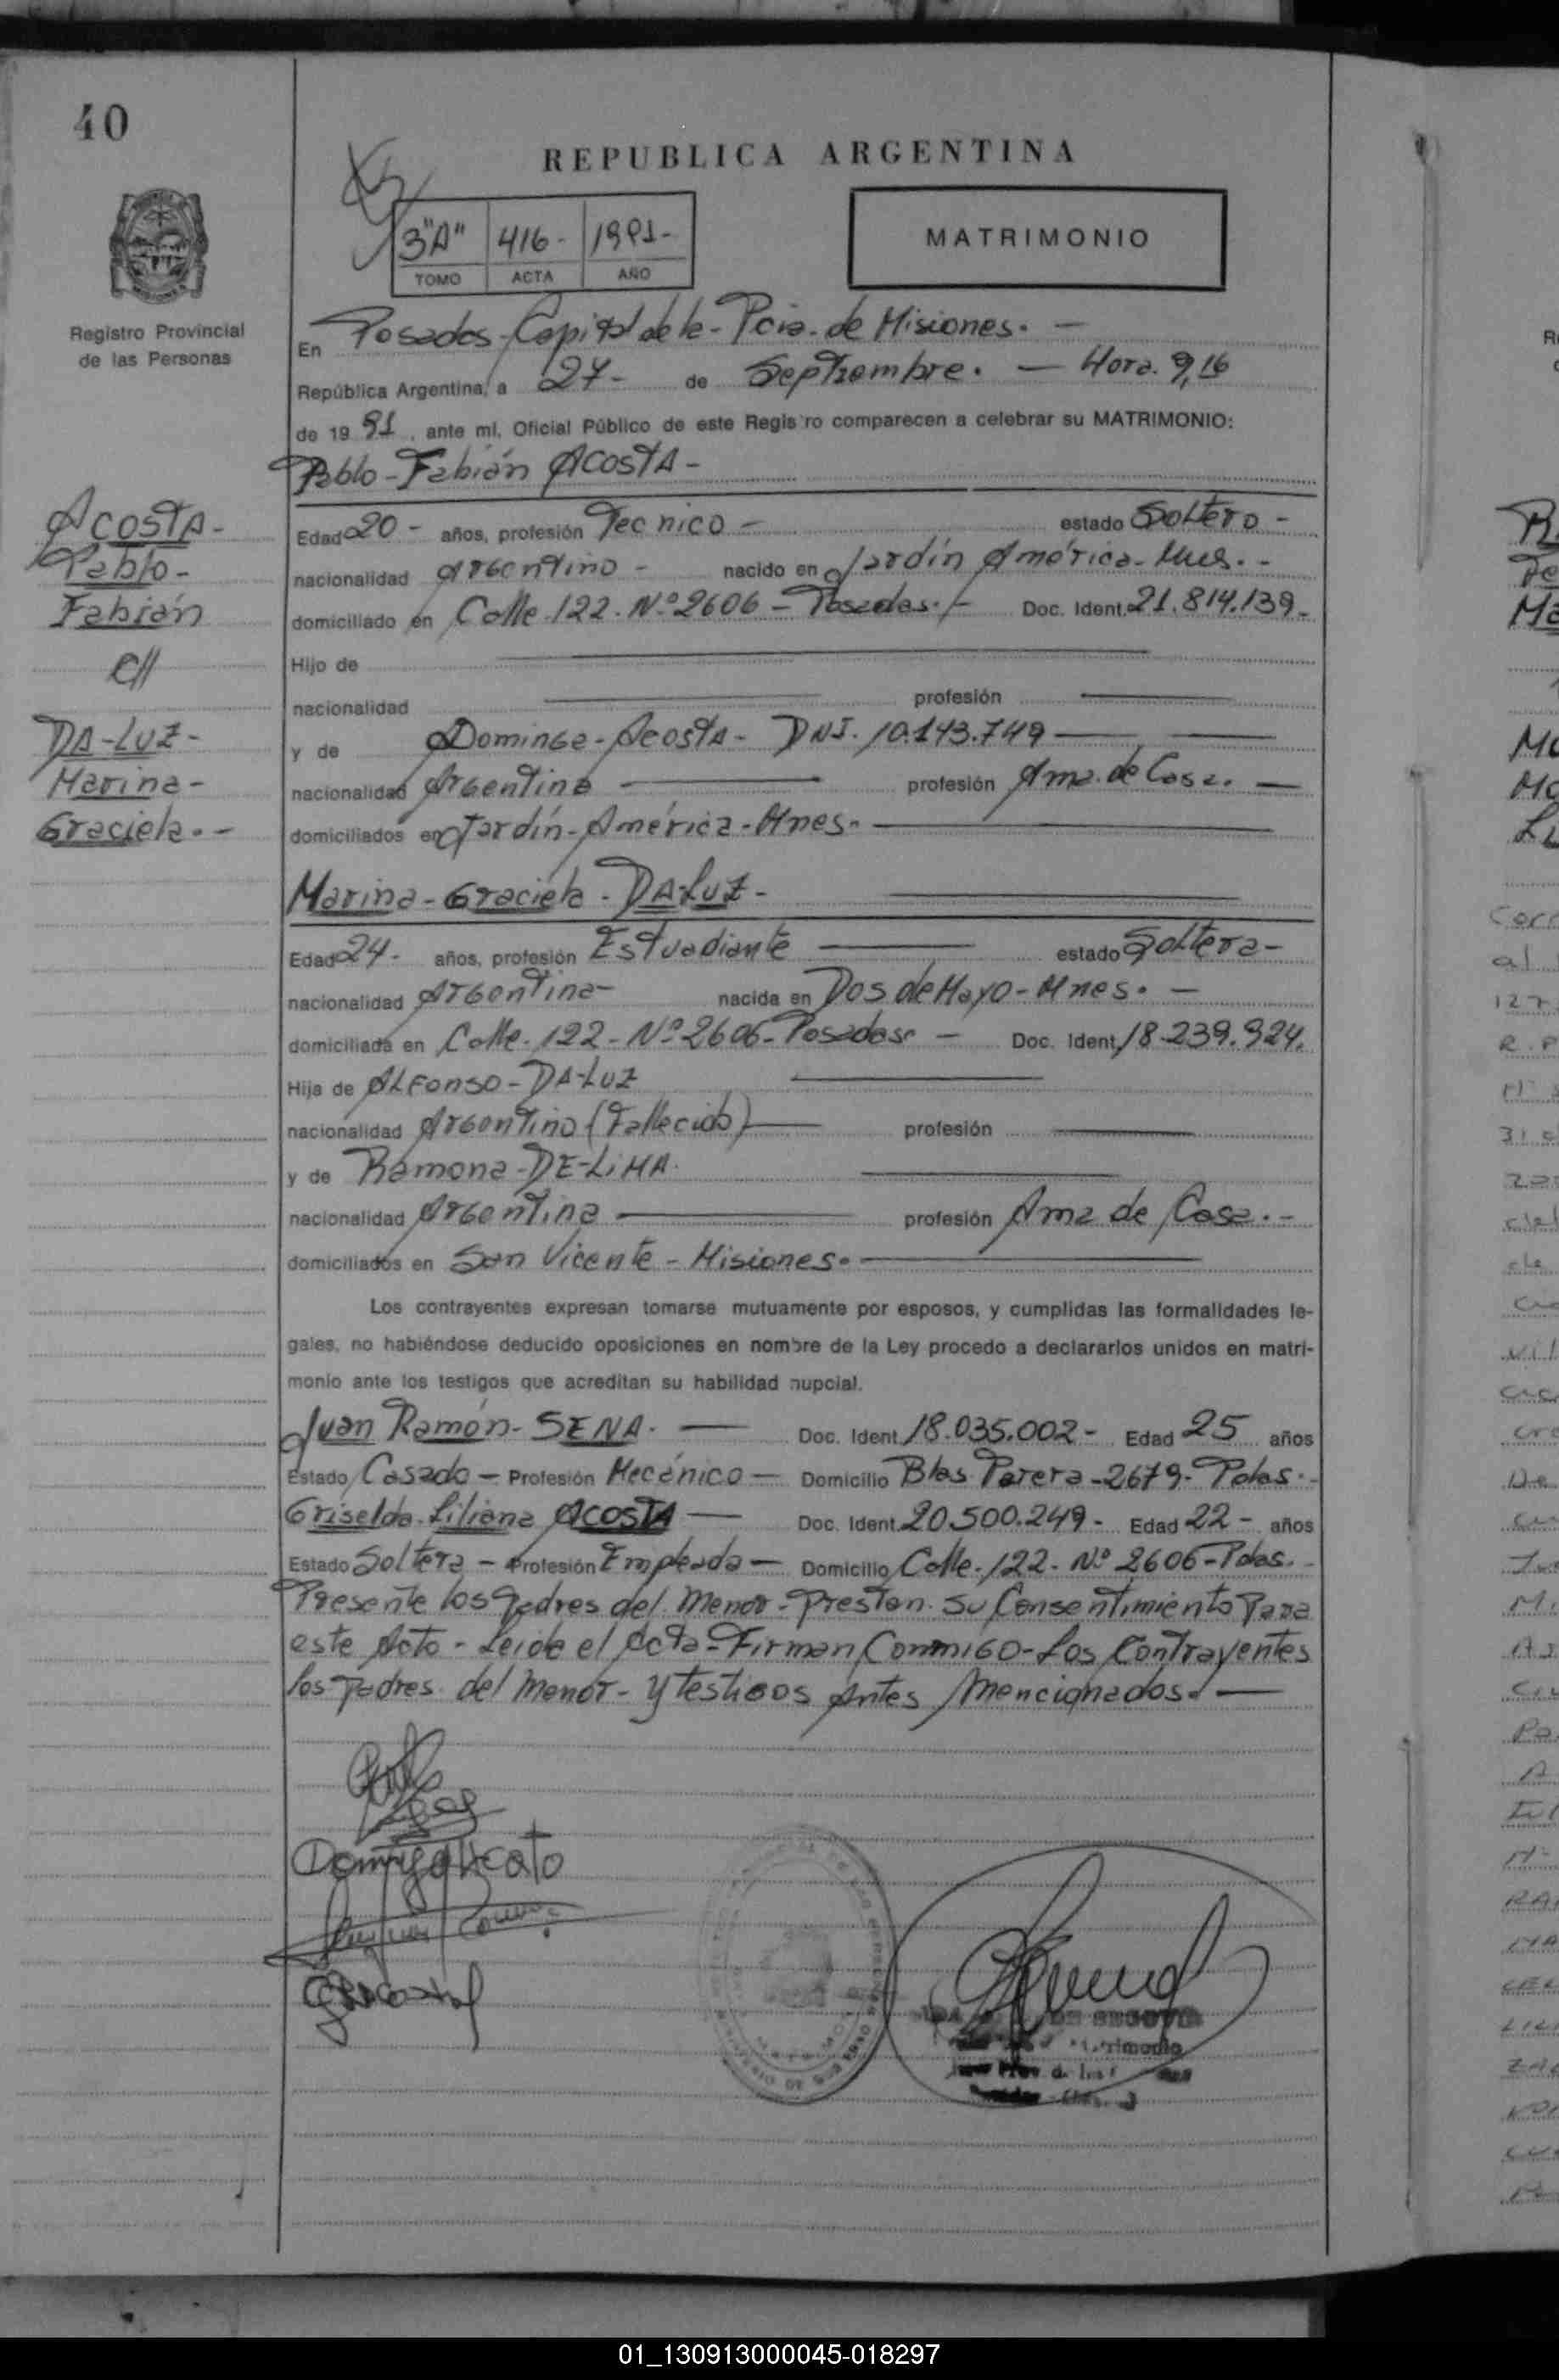 40
REPUBLICA ARGENTINA
3"A" 416- 1991-
TOMO ACTA AÑO
MATRIMONIO
Registro Provincial
de las Personas
En Posadas-Capital de la-Pcia-de Misiones.-
República Argentina, a 27- de Septiembre.- Hora. 9,16
de 19 91, ante mí, Oficial Público de este Registro comparecen a celebrar su MATRIMONIO:
Pablo-Fabián ACOSTA-
ACOSTA-
Pablo-
Fabián
c//
DA-LUZ-
Marina-
Graciela.-
Edad 20- años, profesión Tecnico- estado Soltero-
nacionalidad Argentino- nacido en Jardín América-Mnes.-
domiciliado en Calle-122-Nº2606-Posadas.- Doc. Ident. 21.814.139-
Hijo de
nacionalidad profesión
y de Dominga-Acosta- DNI. 10.143.749
nacionalidad Argentina profesión Ama de Casa.-
domiciliados en Jardín-América-Mnes-
Marina-Graciela-DA-LUZ-
Edad 24- años, profesión Estudiante estado Soltera-
nacionalidad Argentina- nacida en Dos de Mayo-Mnes.-
domiciliada en Calle-122-Nº2606-Posadas- Doc. Ident. 18.239.924.
Hija de ALFONSO-DA-LUZ
nacionalidad Argentino (Fallecido) profesión
y de Ramona-DE-LIMA.
nacionalidad Argentina profesión Ama de Casa.-
domiciliados en San Vicente-Misiones.
Los contrayentes expresan tomarse mutuamente por esposos, y cumplidas las formalidades le-
gales, no habiéndose deducido oposiciones en nombre de la Ley procedo a declararlos unidos en matri-
monio ante los testigos que acreditan su habilidad nupcial.
Juan Ramón-SENA.- Doc. Ident. 18.035.002- Edad 25 años
Estado Casado- Profesión Mecánico- Domicilio Blas Parera-2679-Pdas.-
Griselda-Liliana ACOSTA- Doc. Ident. 20.500.249- Edad 22- años
Estado Soltera- Profesión Empleada- Domicilio Calle-122-Nº 2606-Pdas.-
Presente los Padres del Menor-Prestan su Consentimiento Para
este Acto-Leida el Acta-Firman Conmigo-Los Contrayentes
los Padres del Menor-y testigos Antes Mencionados.-
DE SEGOVIA
01_130913000045-018297